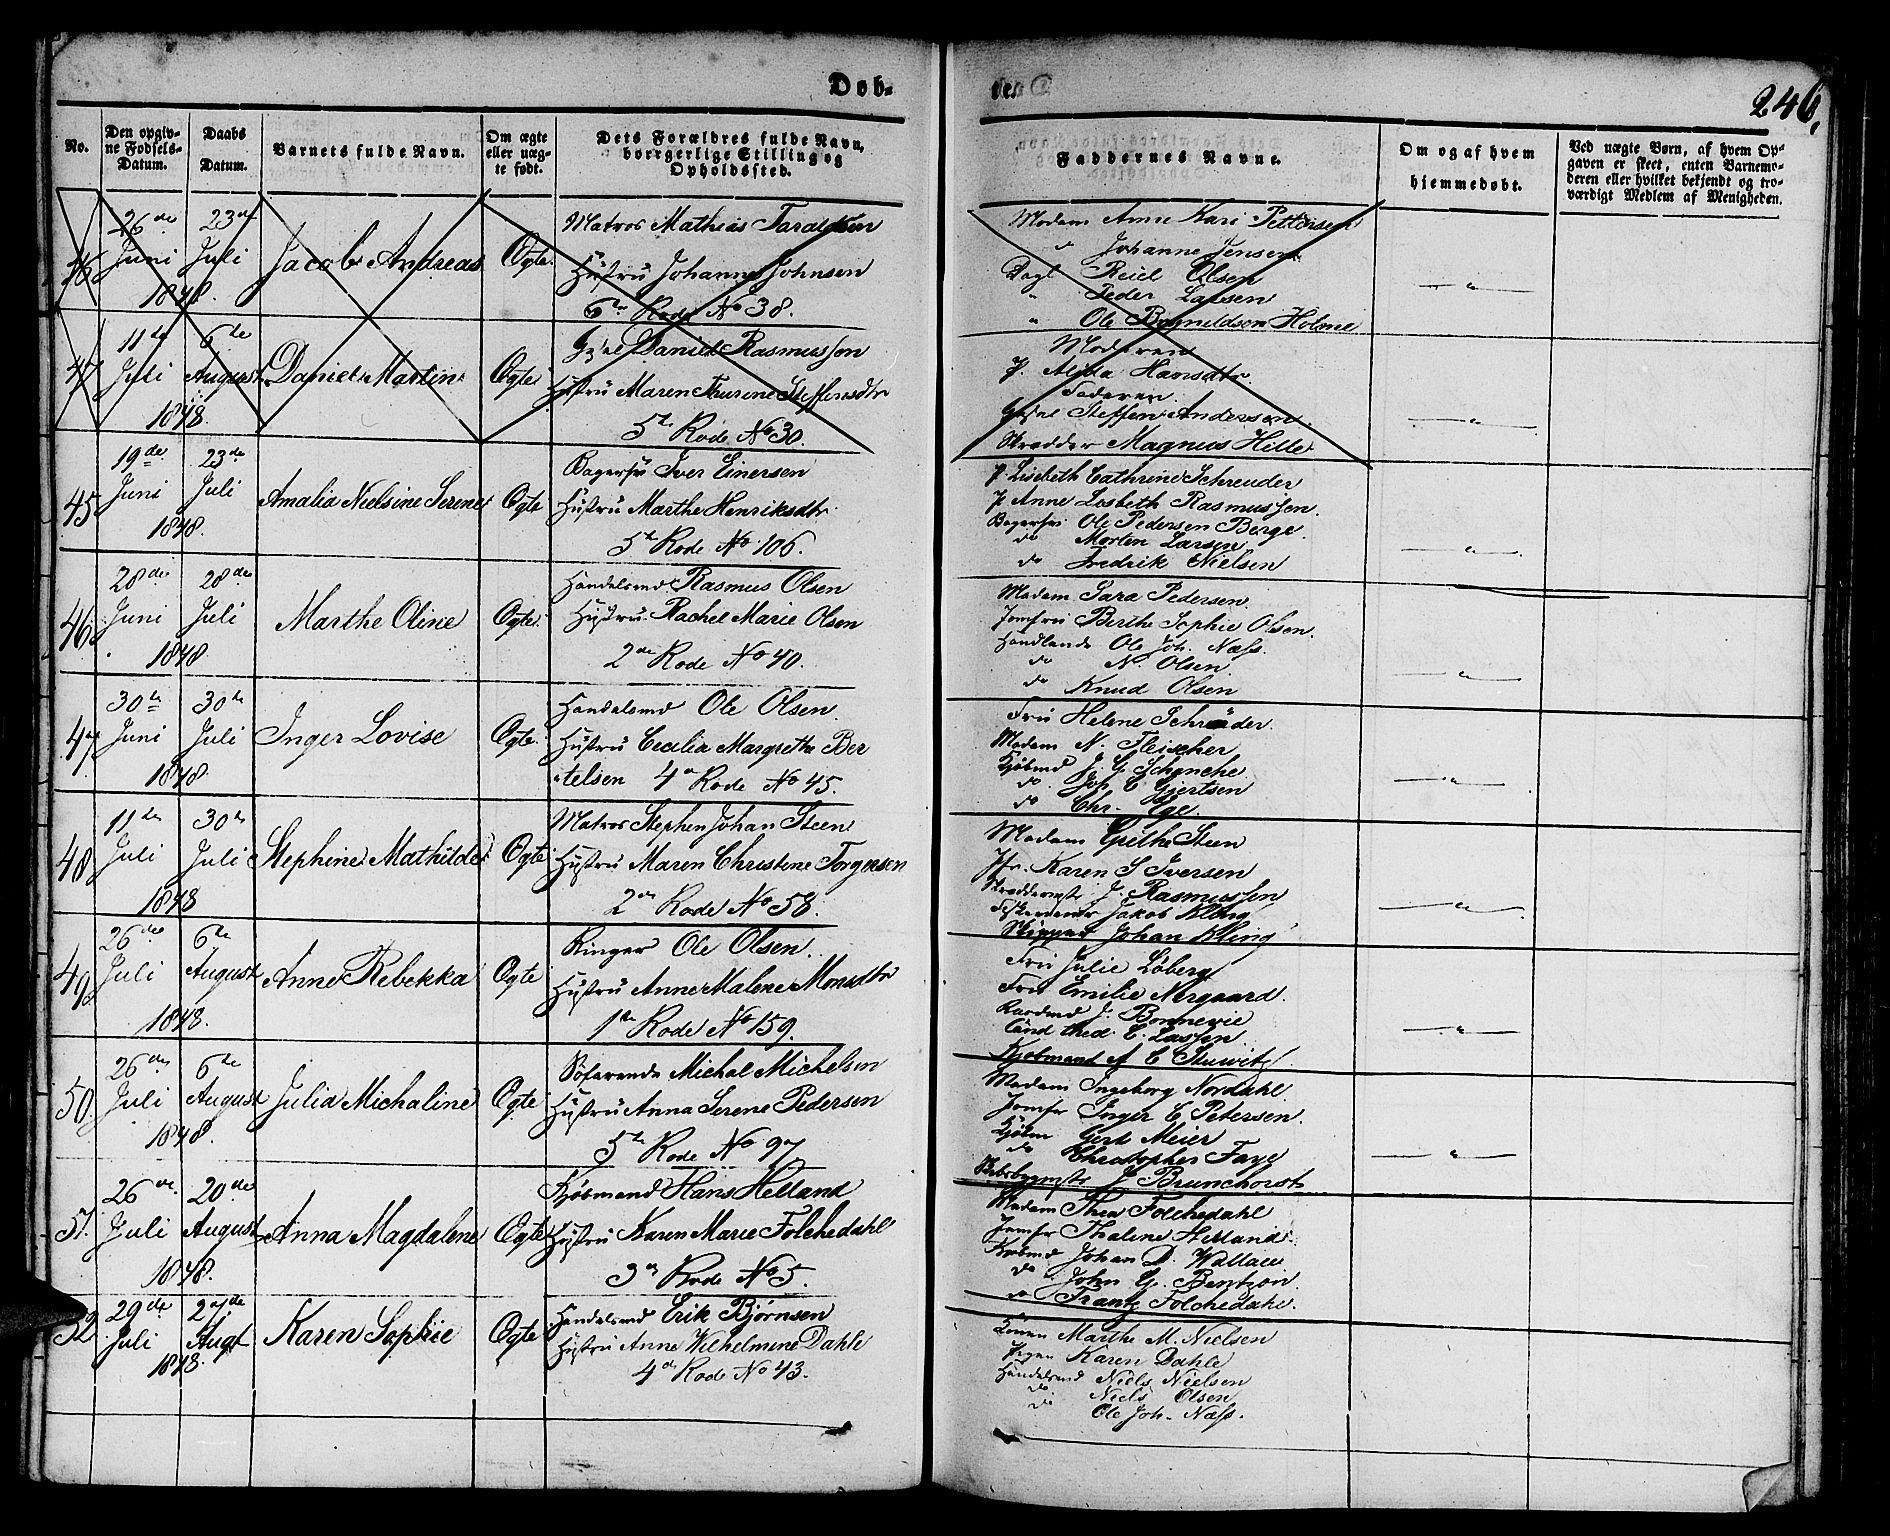 Døb-
te.
246,
No.
Den opgiv-
ne Fødsels-
Datum.
Daabs
Datum.
Barnets fulde Navn.
Om ægte
eller uæg-
te født.
Dets Forældres fulde Navn,
borrgerlige Stilling og
Opholdssted.
Faddernes Navne.
Om og af hvem
hjemmedøbt.
Ved uægte Børn, af hvem Op-
gaven er skeet, enten Barnemo-
deren eller hvilket bekjendt og tro-
værdigt Medlem af Menigheden.
46
26de Juni 1848
23de Juli
Jacob Andreas
Ogte
Matros Mathias Taraldsen
Hustru Johanne Johnsen
6te Rode No 38.
Madam Anne Kari Pettersen
do Johanne Jensen
Dagl Reiel Olsen
" Peder Larsen
" Ole Bagneldson Holme
47
11te Juli 1848.
6te August
Daniel Martin
Ogte
Daniel Rasmussen
Hustru Maren Thurine Steffensdtr
5te Rode No 30.
Moderen
P. Alida Hansdtr.
Faderen.
Steffen Andersen
Skrædder Magnus Hille
45
19de Juni 1848.
23de Juli
Amalia Nielsine Serene
Ogte
Bagersv Iver Einersen
Hustru Marthe Henriksdtr
5te Rode No 106.
P Lisebeth Cathrine Schreuder
P Anne Lisbeth Rasmussen.
Bagersv Ole Pedersen Berge.
do Morten Larsen
do Fredrik Nielsen
46
28de Juni 1848.
28de Juli
Marthe Oline
Ogte.
Handelsmd Rasmus Olsen
Hustru Rachel Marie Olsen
2de Rode No 40.
Madam Sara Pedersen.
Jomfru Berthe Sophie Olsen.
Handlende Ole Joh. Næss.
do N. Olsen
do Knud Olsen
47
30te Juni 1848.
30te Juli
Inger Lovise
Ogte.
Handelsmd Ole Olsen.
Hustru Cecilia Margrethe Ber
telsen 4de Rode No 45.
Fru Helene Schrøder.
Madam N. Fleischer
Kjøbmd J. G. Schanche.
do Joh. C Gjertsen
do Chr. Ege.
48
11te Juli 1848
30te Juli
Stephine Mathilde
Ogte
Matros Stephen Johan Steen
Hustru Maren Christene Torgersen
2den Rode No 58.
Madam Grethe Steen
Jfr. Karen S Iversen
Skreddermstr J. Rasmussen
Jakob Kling
Skipper Johan Kling
49
26de Juli 1848.
6te August
Anne Rebekka
Ogte
Ringer Ole Olsen.
Hustru Anne Malene Monsdtr
1ste Rode No 159.
Fru Julie Løberg
Fru Emilie Nergaard.
J. Bonnevie
Cand theol. C. Lassen
Kjøbmand A C Stuwitz.
50.
26de Juli 1848.
6te August
Julia Michaline
Ogte
Søfarende Michal Michelsen
Hustru Anna Serene Pedersen
5te Rode No 97
Madam Ingeborg Nordahl.
Jomfr Inger C Petersen.
Kjøbm Gert Meier
do Christopher Faye
Skibsbygmstr J Brunchorst
51.
26de Juli 1848.
20de August
Anna Magdalene
Ogte
Kjøbmand Hans Helland
Hustru Karen Marie Folchedahl
3de Rode No 5.
Madam Thea Folchedahl
Jomfr Thaline Helland.
Kjøbmd Johan D. Wallace
do John G. Bentzon
do Frantz Folchedahl.
52
29de Juli 1848.
27de Augt
Karen Sophie
Ogte
Handelsmd Erik Bjørnsen
Hustru Anne Wilhelmine Dahle
4de Rode No 43.
Konen Marthe M. Nielsen
Pigen Karen Dahle
Handelsmd Niels Nielsen
do Niels Olsen
do Ole Joh. Næss.